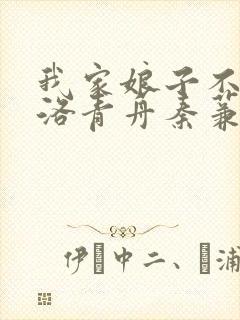 我家娘子不
洛青丹秦蒹
伊 中二、 浦